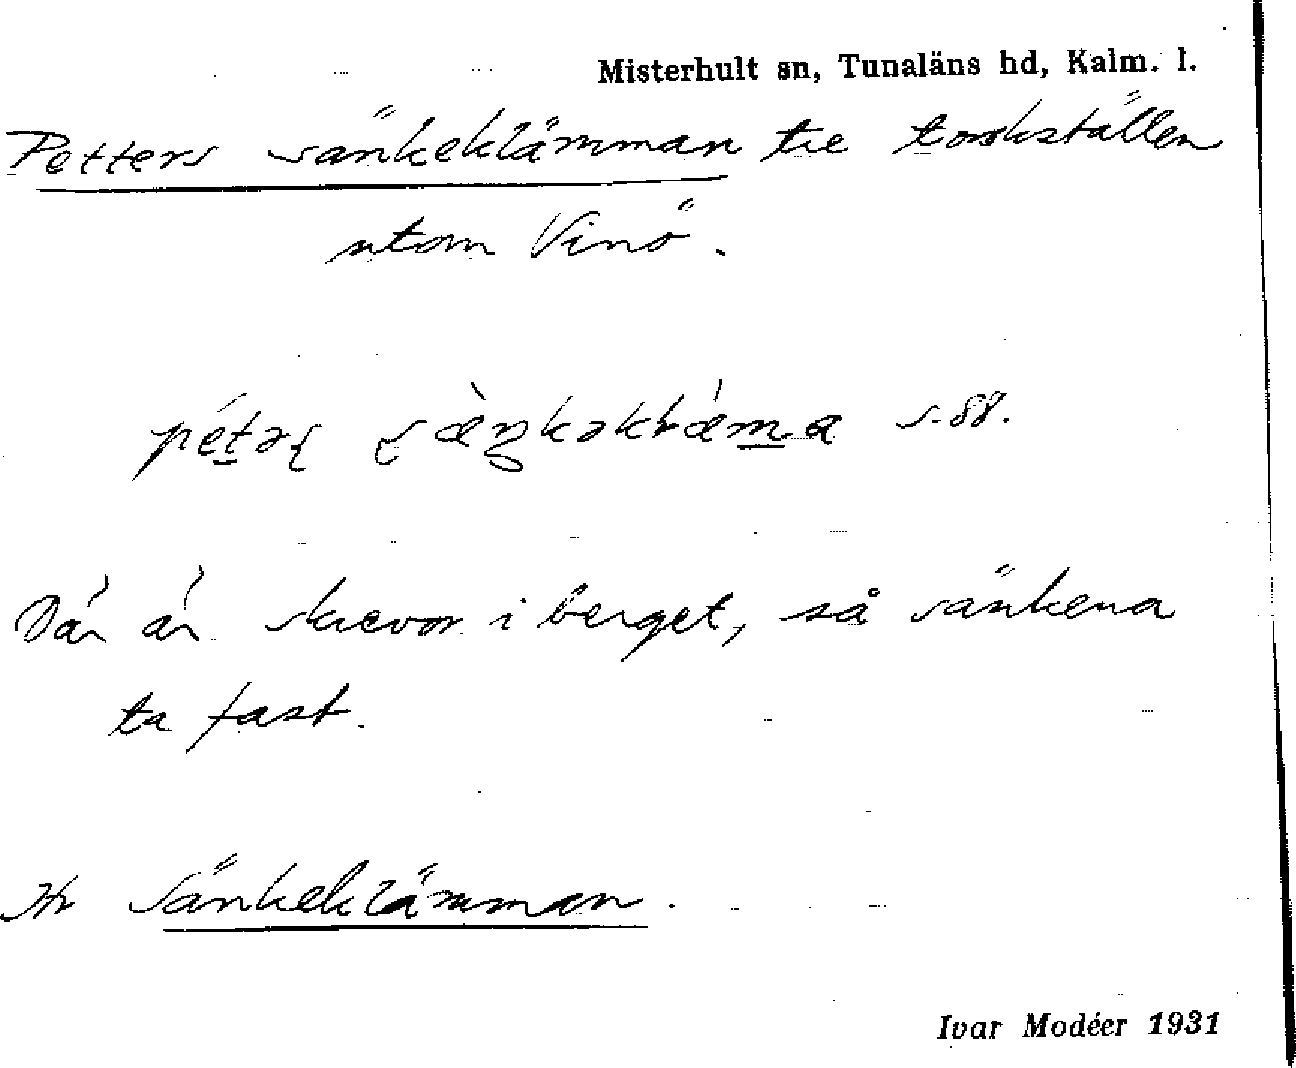 Misterhult sn, Tunaläns hd, Kalm. l.
Petters sänkeklämman tre torskställen
utom Vinö.
s. 88.
Där är skrevor i berget, så sänkena
ta fast.
Hr Sänkeklämman.
Ivar Modéer 1931